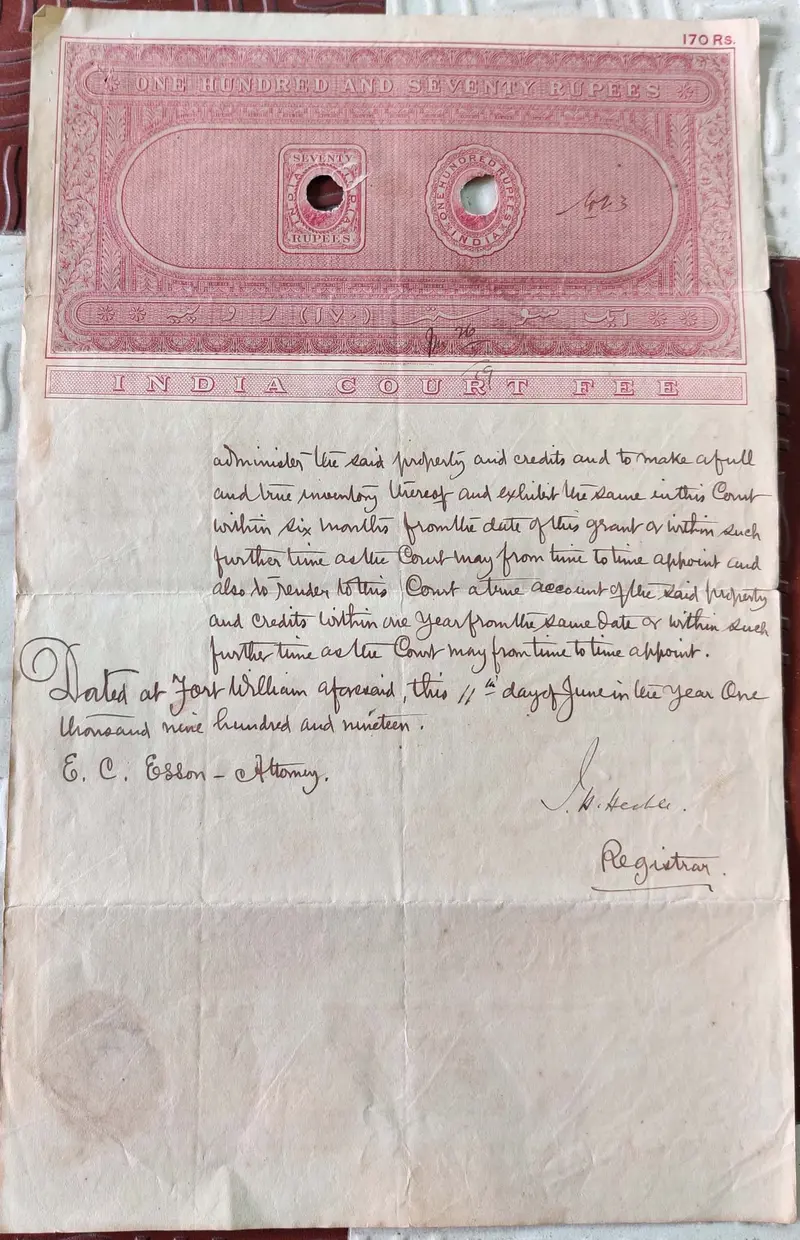 170 Rs.
ONE HUNDRED AND SEVENTY RUPEES
SEVENTY
INDIA
INDIA
RUPEES
ONE HUNDRED RUPEES
INDIA
ایک سو ستر (۱۷۰) روپیہ
INDIA COURT FEE
administer the said property and credits and to make a full
and true inventory thereof and exhibit the same in this Court
within six months from the date of this grant or within such
further time as the Court may from time to time appoint and
also to render to this Court a true account of the said property
and credits within one Year from the same date or within such
further time as the Court may from time to time appoint.
Dated at Fort William aforesaid, this 11th day of June in the Year One
thousand nine hundred and nineteen.
E. C. Esson - Attorney.
Registrar.